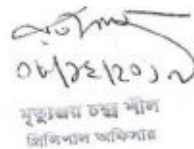 ০৮/১২/২০১৯
মৃত্যুঞ্জয় চন্দ্র শীল
প্রিন্সিপাল অফিসার